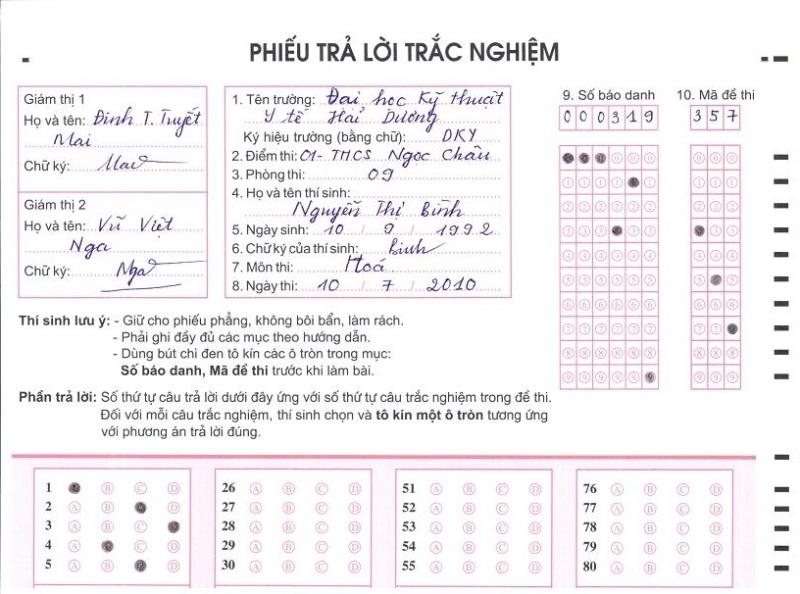 PHIẾU TRẢ LỜI TRẮC NGHIỆM
Giám thị 1
Họ và tên: Đinh T. Tuyết
Mai
Chữ ký: Mai
Giám thị 2
Họ và tên: Vũ Việt
Nga
Chữ ký: Nga
1. Tên trường: Đại học Kỹ thuật
Y tế Hải Dương
Ký hiệu trường (bằng chữ): DKY
2. Điểm thi: 01- THCS Ngọc Châu
3. Phòng thi: 09
4. Họ và tên thí sinh:
Nguyễn Thị Bình
5. Ngày sinh: 10 / 9 / 1992
6. Chữ ký của thí sinh: Binh
7. Môn thi: Hoá
8. Ngày thi: 10 / 7 / 2010
9. Số báo danh
000319
10. Mã đề thi
357
0 0 0 0 0 0 0 0 0
1 1 1 1 1 1 1 1 1
2 2 2 2 2 2 2 2 2
3 3 3 3 3 3 3 3 3
4 4 4 4 4 4 4 4 4
5 5 5 5 5 5 5 5 5
6 6 6 6 6 6 6 6 6
7 7 7 7 7 7 7 7 7
8 8 8 8 8 8 8 8 8
9 9 9 9 9 9 9 9 9
Thí sinh lưu ý: - Giữ cho phiếu phẳng, không bôi bẩn, làm rách.
- Phải ghi đầy đủ các mục theo hướng dẫn.
- Dùng bút chì đen tô kín các ô tròn trong mục:
Số báo danh, Mã đề thi trước khi làm bài.
Phần trả lời: Số thứ tự câu trả lời dưới đây ứng với số thứ tự câu trắc nghiệm trong đề thi.
Đối với mỗi câu trắc nghiệm, thí sinh chọn và tô kín một ô tròn tương ứng
với phương án trả lời đúng.
1 B C D 26 A B C D 51 A B C D 76 A B C D
2 A B D 27 A B C D 52 A B C D 77 A B C D
3 A B C 28 A B C D 53 A B C D 78 A B C D
4 A C D 29 A B C D 54 A B C D 79 A B C D
5 A B D 30 A B C D 55 A B C D 80 A B C D